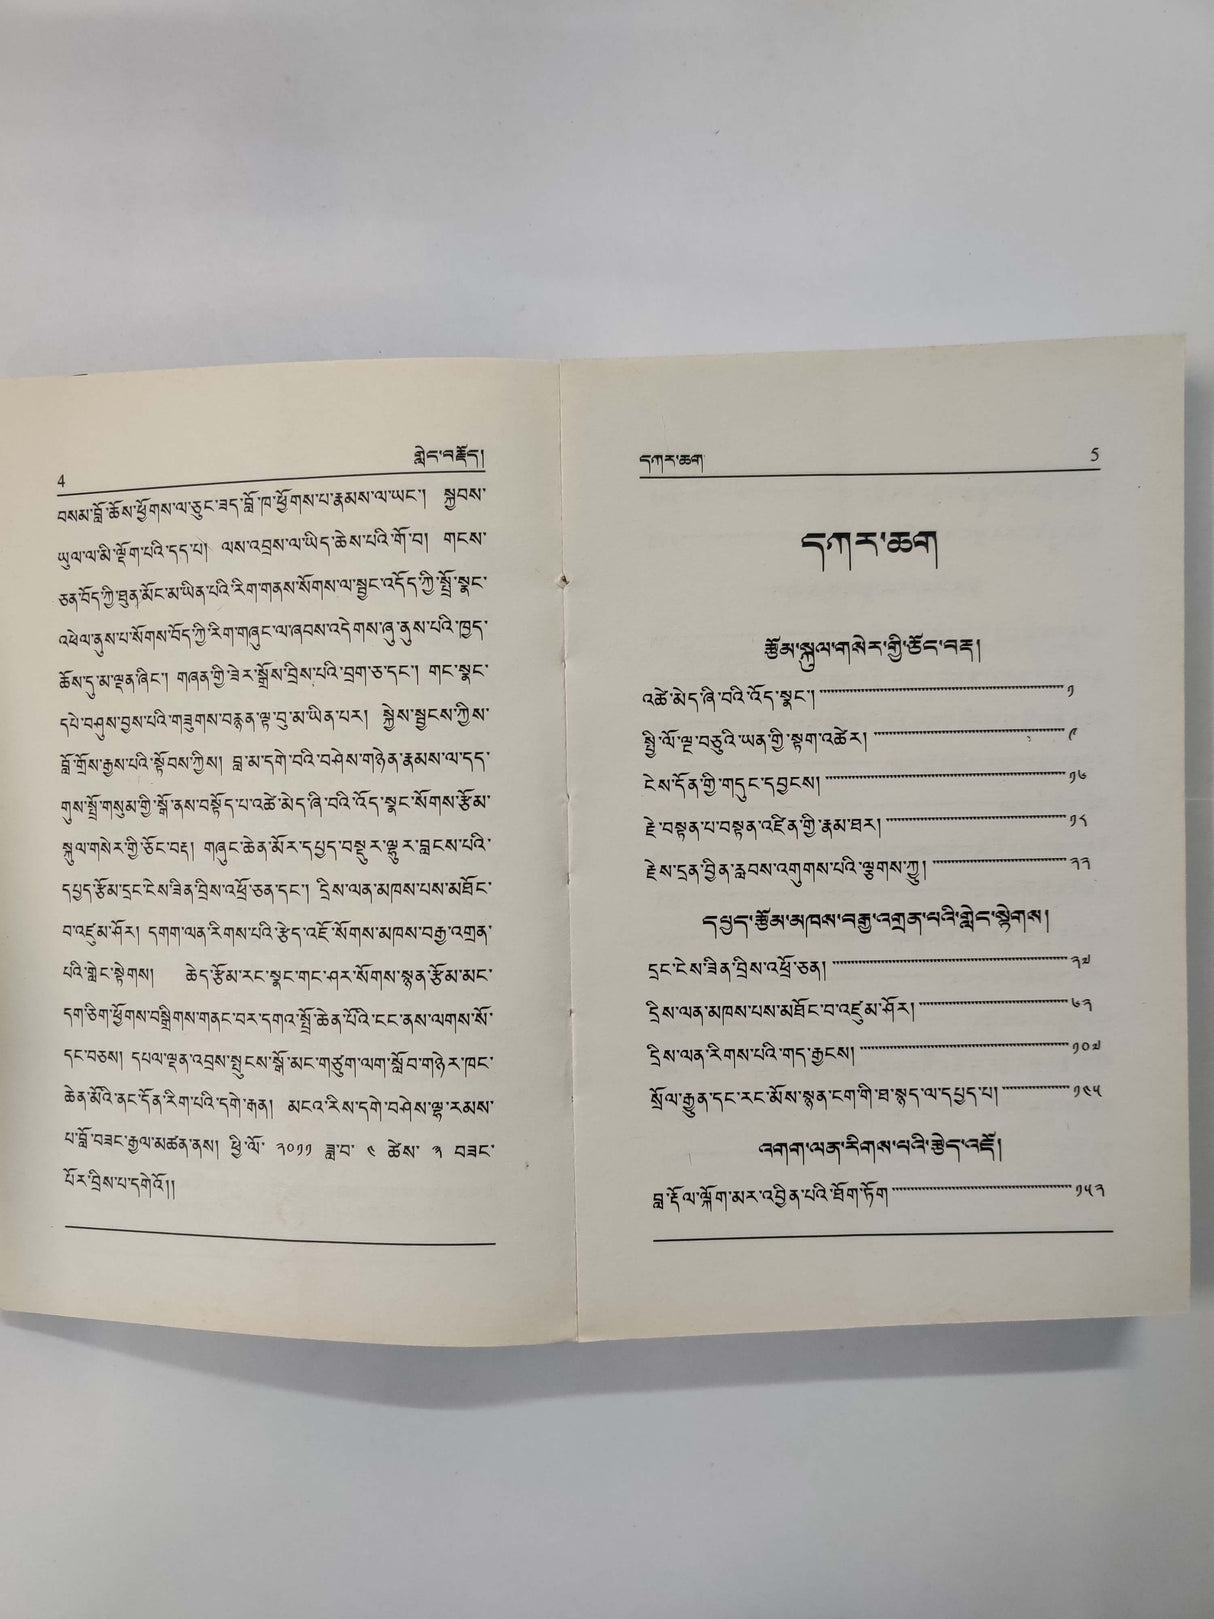 4
གླེང་བརྗོད།
བསམ་བློ་ཆོས་ཕྱོགས་ལ་ཅུང་ཟད་བློ་ཁ་ཕྱོགས་པ་རྣམས་ལ་ཡང་། སྐྱབས་
ཡུལ་ལ་མི་ལྡོག་པའི་དད་པ། ལས་འབྲས་ལ་ཡིད་ཆེས་པའི་གོ་བ། གངས་
ཅན་བོད་ཀྱི་ཐུན་མོང་མ་ཡིན་པའི་རིག་གནས་སོགས་ལ་སྦྱང་འདོད་ཀྱི་སྤྲོ་སྣང་
འཕེལ་ནུས་པ་སོགས་བོད་ཀྱི་རིག་གཞུང་ལ་ཞབས་འདེགས་ཞུ་ནུས་པའི་ཁྱད་
ཆོས་དུ་མ་ལྡན་ཞིང་། གཞན་གྱི་ཟེར་སྒྲོས་བྲིས་པའི་བྲག་ཅ་དང་། གང་སྣང་
དཔེ་བཤུས་བྱས་པའི་གཟུགས་བརྙན་ལྟ་བུ་མ་ཡིན་པར། སྐྱེས་སྦྱངས་ཀྱིས་
བློ་གྲོས་རྒྱས་པའི་སྟོབས་ཀྱིས། བླ་མ་དགེ་བའི་བཤེས་གཉེན་རྣམས་ལ་དད་
གུས་སྤྲོ་གསུམ་གྱི་སྒོ་ནས་བསྟོད་པ་འཚེ་མེད་ཞི་བའི་འོད་སྣང་སོགས་རྩོམ་
སྐུལ་གསེར་གྱི་ཅོང་བརྡ། གཞུང་ཆེན་མོར་དཔྱད་བསྡུར་ལྷུར་བླངས་པའི་
དཔྱད་རྩོམ་དྲང་ངེས་ཟིན་བྲིས་འཕྲོ་ཅན་དང་། དྲིས་ལན་མཁས་པས་མཐོང་
བ་འཛུམ་ཤོར། དགག་ལན་རིགས་པའི་རྩེད་འཇོ་སོགས་མཁས་བརྒྱ་འགྲན་
པའི་གླེང་སྟེགས། ཆེད་རྩོམ་རང་སྣང་གང་ཤར་སོགས་སྙན་རྩོམ་མང་
དག་ཅིག་ཕྱོགས་བསྒྲིགས་གནང་བར་དགའ་སྤྲོ་ཆེན་པོའི་ངང་ནས་ལགས་སོ་
དང་བཅས། དཔལ་ལྡན་འབྲས་སྤུངས་སྒོ་མང་གཙུག་ལག་སློབ་གཉེར་ཁང་
ཆེན་མོའི་ནང་དོན་རིག་པའི་དགེ་རྒན། མངའ་རིས་དགེ་བཤེས་ལྷ་རམས་
པ་བློ་བཟང་རྒྱལ་མཚན་ནས། ཕྱི་ལོ་ ༢༠༡༡ ཟླ་བ་ ༤ ཚེས་ ༣ བཟང་
པོར་བྲིས་པ་དགེའོ།།
དཀར་ཆག
5
དཀར་ཆག
རྩོམ་སྐུལ་གསེར་གྱི་ཅོང་བརྡ།
འཚེ་མེད་ཞི་བའི་འོད་སྣང་། ༡
སྤྱི་ལོ་ལྔ་བཅུའི་ཡན་གྱི་སྟག་འཚེར། ༩
ངེས་དོན་གྱི་གདུང་དབྱངས། ༡༦
རྗེ་བསྟན་པ་བསྟན་འཛིན་གྱི་རྣམ་ཐར། ༡༨
རྗེས་དྲན་བྱིན་རླབས་འགུགས་པའི་ལྕགས་ཀྱུ། ༢༢
དཔྱད་རྩོམ་མཁས་བརྒྱ་འགྲན་པའི་གླེང་སྟེགས།
དྲང་ངེས་ཟིན་བྲིས་འཕྲོ་ཅན། ༢༧
དྲིས་ལན་མཁས་པས་མཐོང་བ་འཛུམ་ཤོར། ༦༢
དྲིས་ལན་རིགས་པའི་གད་རྒྱངས། ༡༠༧
སྲོལ་རྒྱུན་དང་རང་མོས་སྙན་ངག་གི་ཐ་སྙད་ལ་དཔྱད་པ། ༡༤༥
འགག་ལན་རིགས་པའི་རྩེད་འཇོ།
བླ་རྡོལ་ལྐོག་མར་འབྱིན་པའི་ཐོག་ཏོག ༡༥༢